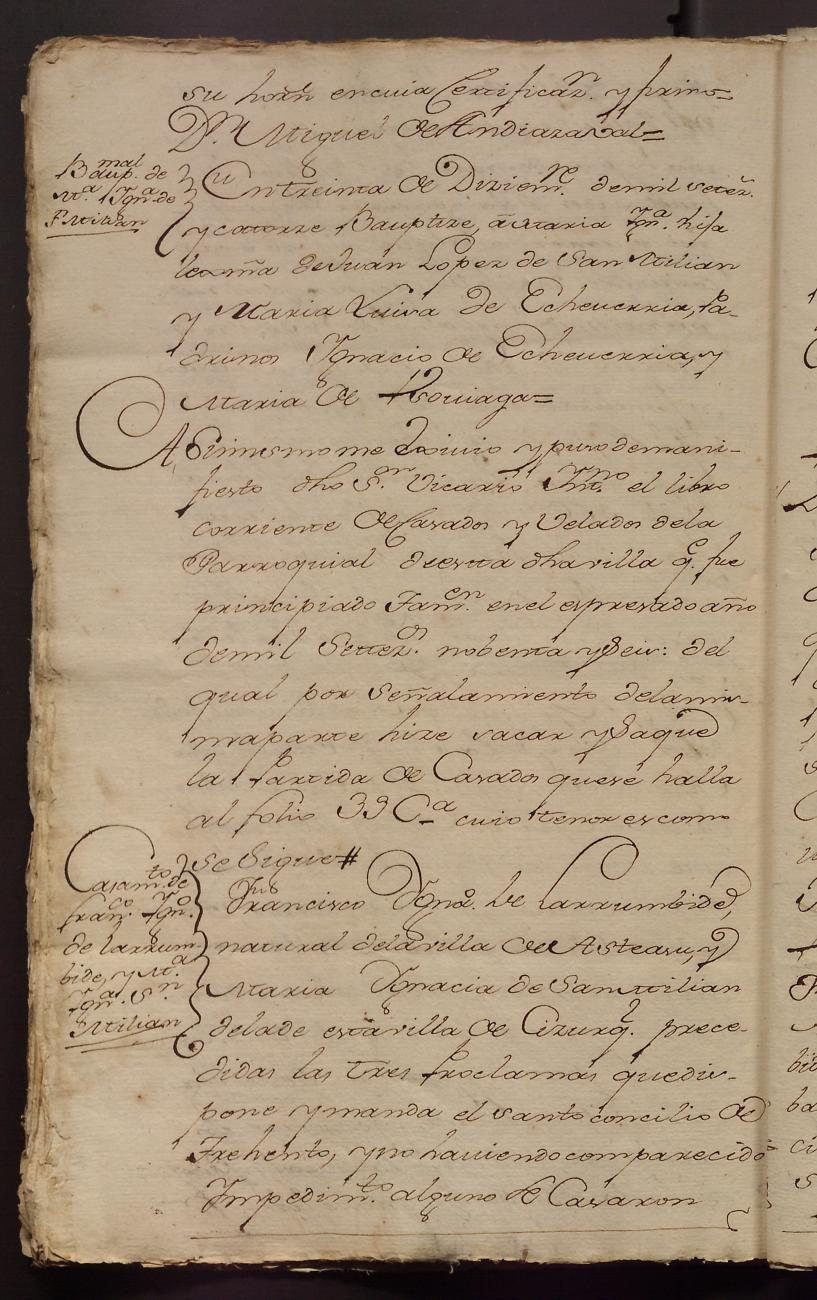 su horñ encuia Certificaz.ⁿ y firmo=
D.ⁿ Miguel de Andiazaval=
Bau.mal de
M.ª Ign.ª de
S Milian
En treinta de Diziem.re de mil setez.
y catorze Bauptize, a Maria Ign.ª hija
lexma de Juan Lopez de San Milian
y Maria Luisa de Echeverria, Pa-
drinos Ignacio de Echeverria, y
Maria de
Asimismo me exivio y puso de mani-
fiesto dho S.or Vicario Int.no el libro
corriente de Casados y Velados de la
Parroquial de esta dha villa q.e fue
principiado Tam.en en el espresado año
de mil Setez.s nobenta y seis: del
qual por señalamiento de la mis-
ma parte hize sacar y saque
la Partida de Casados que se halla
al folio 39 C.ª cuio tenor es como
se sigue #
Casam.to de
Fran.co Ign.o
de Larrum-
bide, y M.ª
Ign.ª S.n
Milian
Francisco Igna.o de Larrumbide,
natural de la villa de Asteasu, y
Maria Ignacia de San Milian
de la de esta villa de Cizurq.l prece-
didas las tres Proclamas que dis-
pone y manda el santo concilio de
Trehento, y no haviendo comparecido
Impedim.to alguno se Casaron